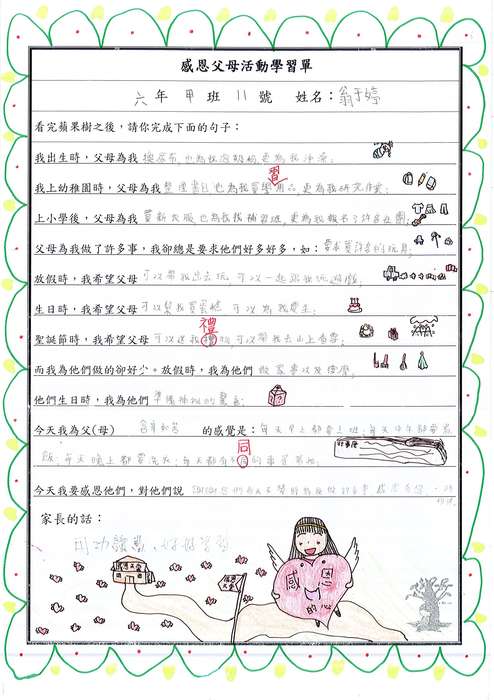 感恩父母活動學習單
六年 甲 班 11 號 姓名:翁于婷
看完蘋果樹之後,請你完成下面的句子:
我出生時,父母為我換尿布,也為我泡奶粉,更為我洗澡;
習
我上幼稚園時,父母為我整理書包,也為我買學用品,更為我研究作業;
上小學後,父母為我買新衣服,也為我找補習班,更為我報名了許多社團;
父母為我做了許多事,我卻總是要求他們好多好多,如:要求買許多的玩具,
放假時,我希望父母可以帶我出去玩,可以一起跟我玩遊戲;
生日時,我希望父母可以幫我買蛋糕,可以為我慶生;
禮
聖誕節時,我希望父母可以送我禮物,可以帶我去山上看雪;
而我為他們做的卻好少。放假時,我為他們做家事以及按摩,
他們生日時,我為他們準備神秘的驚喜;
今天我為父(母)的感覺是:每天早上都要上班;每天中午都要煮
同
飯;每天晚上都要洗衣;每天都有不同的事等著他
今天我要感恩他們,對他們說
家長的話:
用功讀書、好好學習
感恩
的心